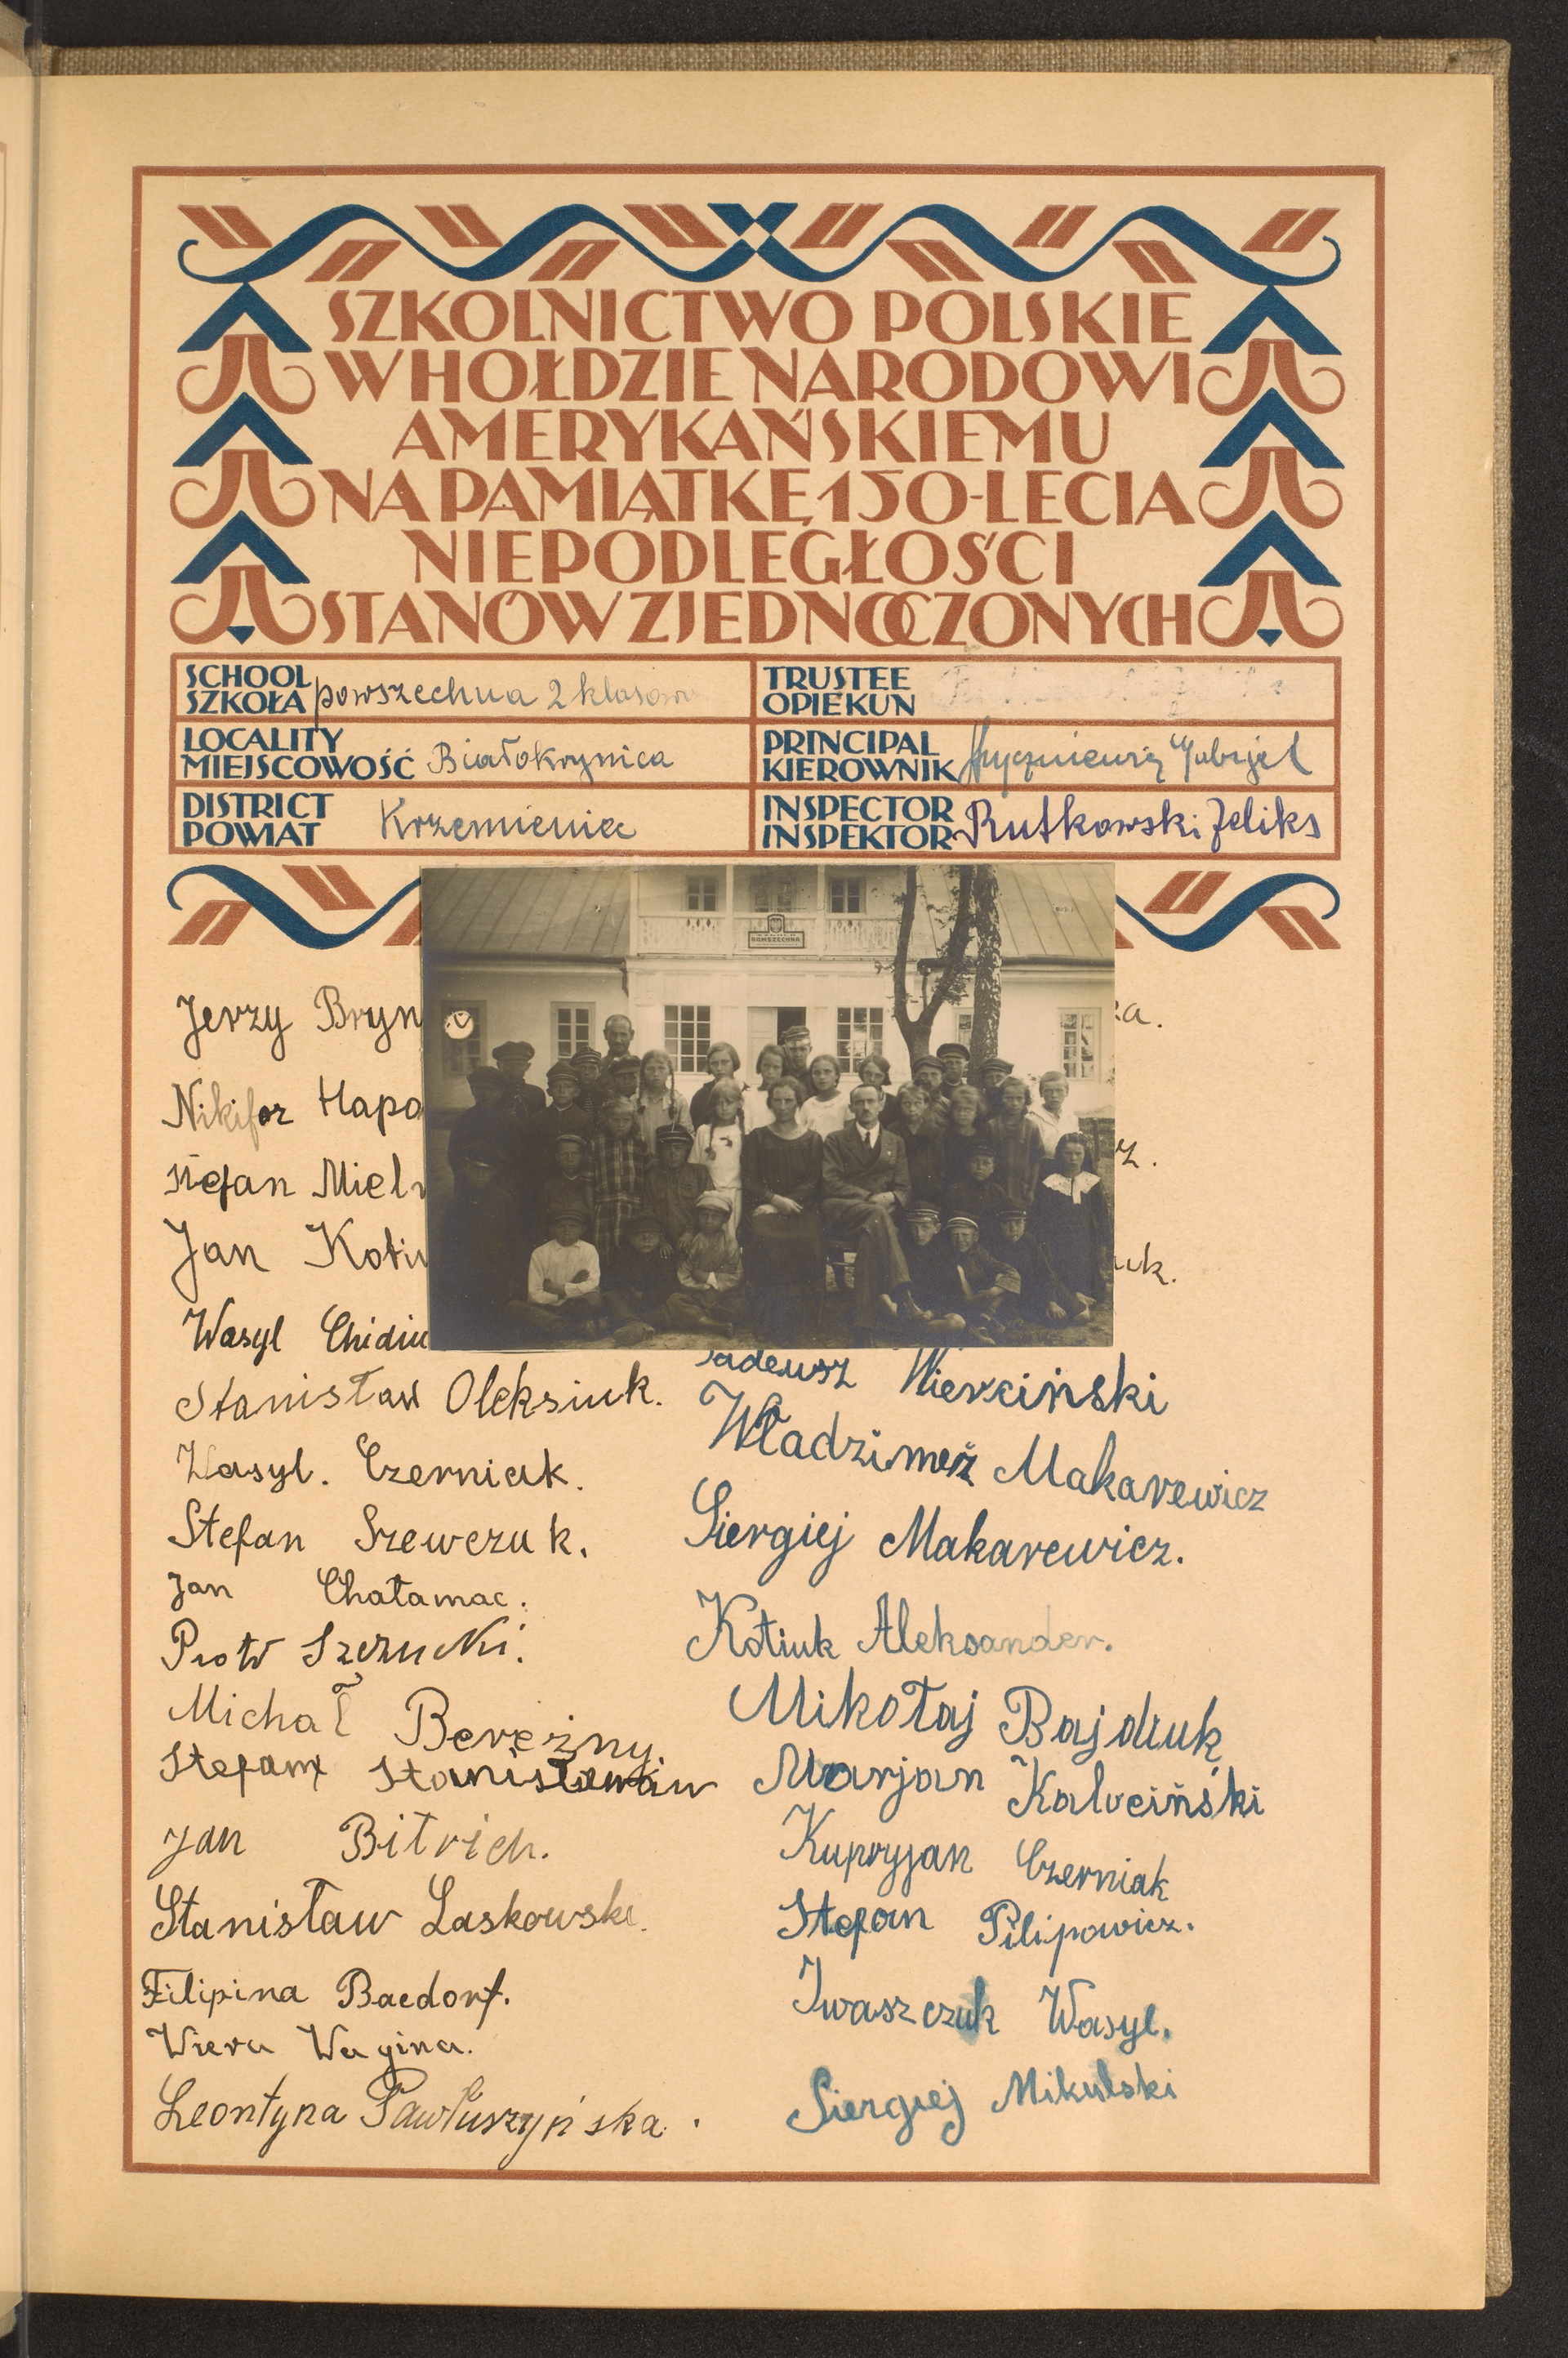 SZKOLNICTWO POLSKIE
W HOŁDZIE NARODOWI
AMERYKAŃSKIEMU
NA PAMIĄTKĘ 150-LECIA
NIEPODLEGŁOŚCI
STANÓW ZJEDNOCZONYCH
SCHOOL
SZKOŁA powszechna 2 klasowa
TRUSTEE
OPIEKUN
LOCALITY
MIEJSCOWOŚĆ Białokrynica
PRINCIPAL
KIEROWNIK Gabrjel
DISTRICT
POWIAT Krzemieniec
INSPECTOR
INSPEKTOR Rutkowski Feliks
POWSZECHNA
Jerzy Bryn
Nikifor Hapo
Stefan Miel
Jan Kotiu
Wasyl Chidiu
Stanisław Oleksiuk.
Wasyl. Czerniak.
Stefan Szewczuk.
Jan Chałamac.
Piotr Szczucki.
Michał Bereżny.
Stefam Stanisławów
Jan Bitrich.
Stanisław Laskowski.
Filipina Baedorf.
Wiera Wagina.
Leontyna Pawłuszyńska.
ka.
z.
uk.
Tadeusz Wierciński
Władzimeż Makarewicz
Siergiej Makarewicz.
Kotiuk Aleksander.
Mikołaj Bajdiuk
Marjan Kalwiński
Kupryjan Czerniak
Stefan Pilipowicz.
Iwaszczuk Wasyl.
Siergiej Mikulski